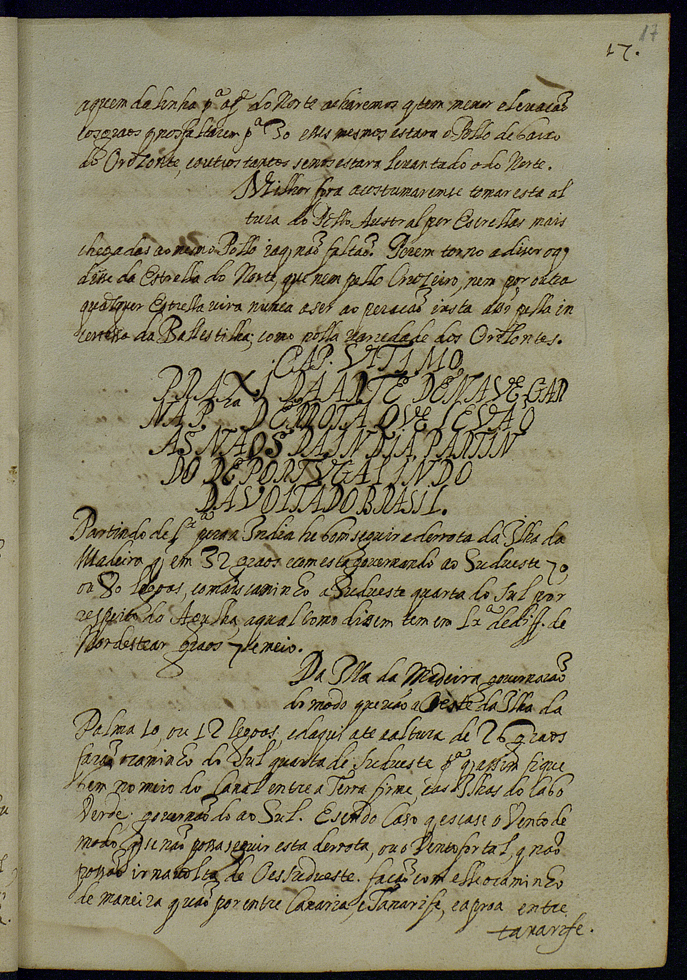 17
17.
aquem da linha p.ª a p.te do Norte acharemos q tem menor elevação
os graos q nos faltarem p.ª 30 e esses mesmos estara o Pollo debaixo
do Orizonte, e outros tantos se nos estara levantado o do Norte.
Milhor fora acustumaremse tomar esta al
tura do Pollo Austral per Estrellas mais
chegadas ao mesmo Pollo ia q não faltão. Porem torno a dizer o q
disse da Estrella do Norte, que nem pello Cruzeiro, nem por outra
qualquer Estrella vira nunca a ser a operação iusta assy pella in
certeza da Ballestilha, como polla variedade dos Orizontes.
CAP. VITAMO.
PRAXI DA ARTE DE NAVEGAR
NA P.ra DERROTA QVE LEVAO
AS NAOS DA INDIA PARTIN
DO DE PORTVGAL INDO
DA VOLTA DO BRASIL.
Partindo de L.ª pera a India he bom seguir a derrota da Ilha da
Madeira q em 32 graos esta governando ao Sudueste 70
ou 80 legoas, e o mais caminho a Sudueste quarta do Sul por
respeito do Agulha, a qual como dissem tem em Lx.ª de diff. de
Nordestear graos 7 e meio.
Da Ilha da Madeira governarão
do modo que vão a Oeste da Ilha da
Palma 10, ou 12 legoas, e daqui ate a altura de 26 graos
farão o caminho do Sul quarta de Sudueste p.ª q assim fique
bem no meio do Canal entre a Terra firme, e as Ilhas do Cabo
Verde. governando ao Sul. E sendo Caso q escase o Vento de
modo q se não possa seguir esta derrota, ou o Vento for tal, q não
possão ir na volta de Oessudueste. fação com elle o caminho
de maneira q vão por entre Canaria, e Tanarife, e a proa entre
tanarife.